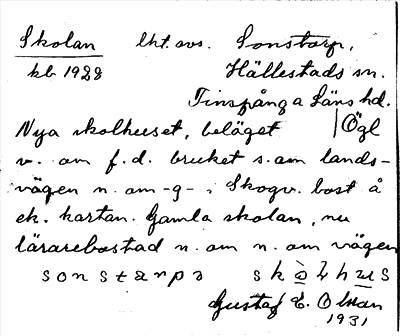 Skolan lht. avs. Sonstorp,
kb 1928 Hällestads sn.
Finspånga Läns hd.
Nya skolhuset, beläget Ögl
v. om f.d. bruket s. om lands-
vägen n. om -g- i Skogv. bost å
ek. kartan. Gamla skolan, nu
lärarebostad n. om n. om vägen
sonstɑrpə skòlhus
Gustaf E. Olsson
1931